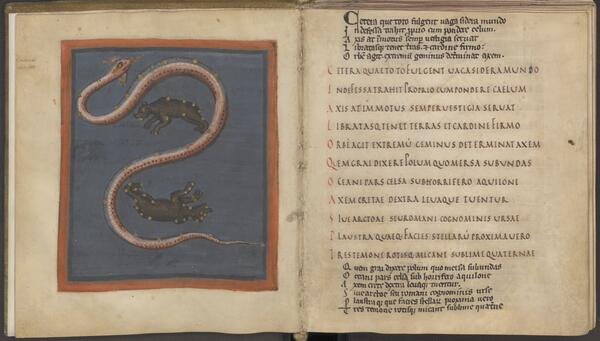 Cetera que toto fulgent vaga sidera mundo
Indefessa trahit proprio cum pondere celum.
Axis at inmotus semper vestigia servat
Libratasque tenet terras & cardine firmo.
Orbē agit extremū geminus determinat axem.
CETERA QUAE TOTO FULGENT VAGA SIDERA MUNDO
INDEFESSA TRAHIT PROPRIO CUM PONDERE CAELUM
AXIS AT IMMOTUS SEMPER VESTIGIA SERVAT
LIBRATASQ TENET TERRAS ET CARDINE FIRMO
ORBĒ AGIT EXTREMŪ GEMINUS DETERMINAT AXEM
QUEM GRAI DIXERE POLUM QUO MERSA SUB UNDAS
OCEANI PARS CELSA SUB HORRIFERO AQUILONE
AXEM CRETAE DEXTRA LEVAQUE TUENTUR
SIVE ARCTOAE SEU ROMANI COGNOMINIS URSAE
PLAUSTRA QUAEQ FACIES STELLARŪ PROXIMA VERO
TRES TEMONE ROTISQ MICANT SUBLIME QUATERNAE
Quem grai dixere polum quo mersa sub undas
Oceani pars celsa sub horrifero aquilone
Axem crete dextra levaque
Sive arctoe seu romani cognominis urse
Plaustra que facies stellarum proxima vero
Tres temone rotisque micant sublime